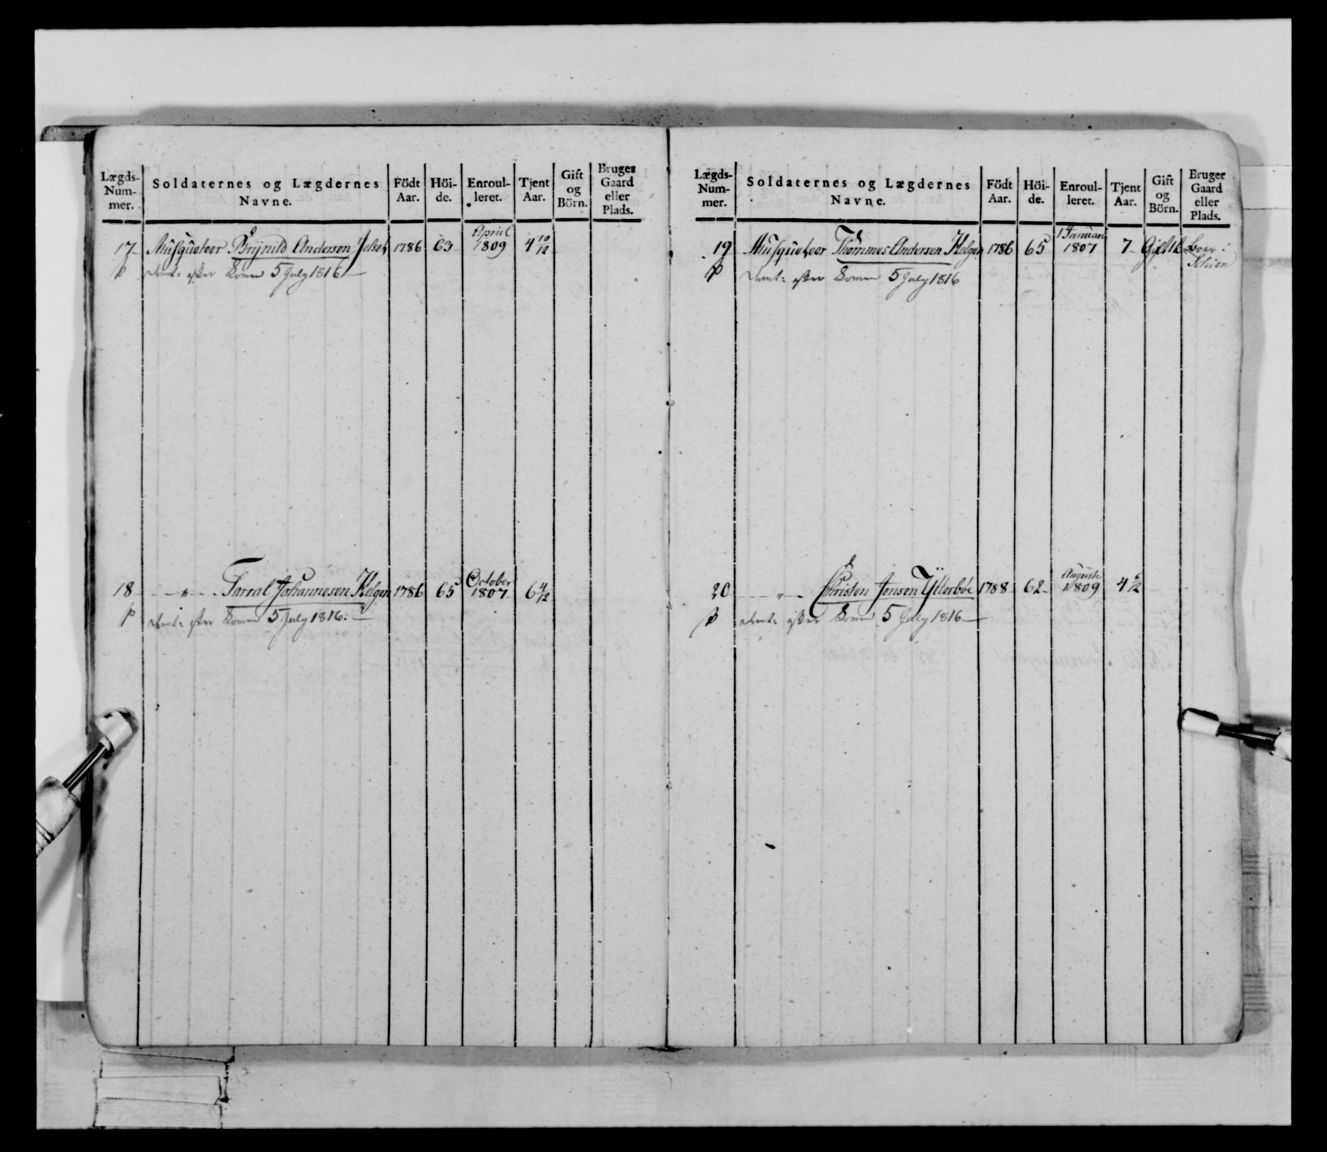 Lægds-
Num-
mer.
Soldaternes og Lægdernes
Navne.
Födt
Aar.
Höi-
de.
Enroul-
leret.
Tjent
Aar.
Gift
og
Börn.
Bruger
Gaard
eller
Plads.
17 Musqueteer Brynild Andersen 1786 63 April 1809 4 10/12
5 July 1816
18 " Johannesen Helgen 1786 65 October 1807 6 4/12
5 July 1816
Lægds-
Num-
mer.
Soldaternes og Lægdernes
Navne.
Födt
Aar.
Höi-
de.
Enroul-
leret.
Tjent
Aar.
Gift
og
Börn.
Bruger
Gaard
eller
Plads.
19 Musqueteer Thommes Andersen Helgen 1786 65 1807 7 Gift
5 July 1816
20 " Christen Jensen Ytterböe 1788 62 August 1809 4
5 July 1816